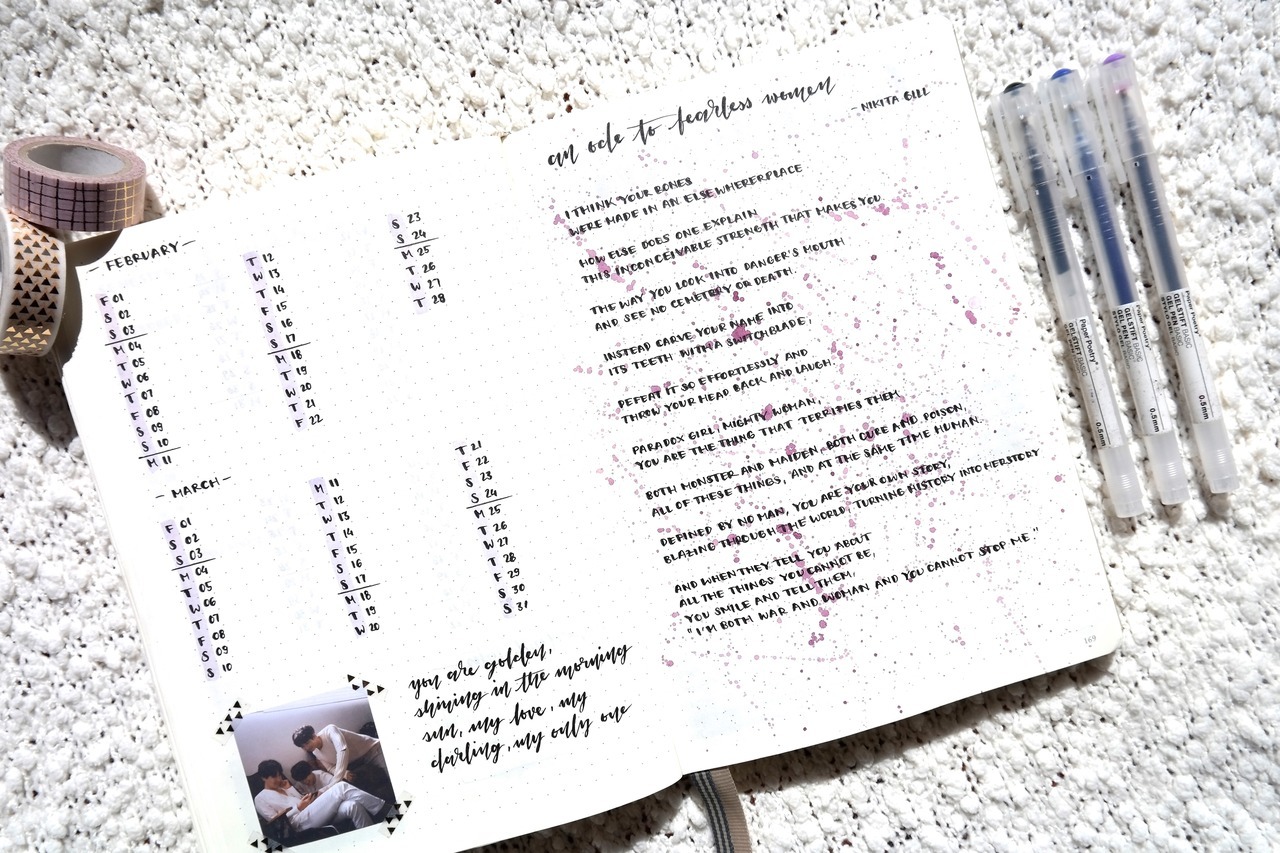 — FEBRUARY —
F 01
S 02
S 03
M 04
T 05
W 06
T 07
F 08
S 09
S 10
M 11
T 12
W 13
T 14
F 15
S 16
S 17
M 18
T 19
W 20
T 21
F 22
S 23
S 24
M 25
T 26
W 27
T 28
— MARCH —
F 01
S 02
S 03
M 04
T 05
W 06
T 07
F 08
S 09
S 10
M 11
T 12
W 13
T 14
F 15
S 16
S 17
M 18
T 19
W 20
T 21
F 22
S 23
S 24
M 25
T 26
W 27
T 28
F 29
S 30
S 31
you are golden,
shining in the morning
sun, my love, my
darling, my only one
an ode to fearless women
- NIKITA GILL
I THINK YOUR BONES
WERE MADE IN AN ELSEWHERERPLACE
HOW ELSE DOES ONE EXPLAIN
THIS INCONCEIVABLE STRENGTH THAT MAKES YOU
THE WAY YOU LOOK INTO DANGER'S MOUTH
AND SEE NO CEMETERY OR DEATH.
INSTEAD CARVE YOUR NAME INTO
ITS TEETH WITH A SWITCHBLADE,
DEFEAT IT SO EFFORTLESSLY AND
THROW YOUR HEAD BACK AND LAUGH.
PARADOX GIRL, MIGHTY WOMAN,
YOU ARE THE THING THAT TERRIFIES THEM,
BOTH MONSTER AND MAIDEN, BOTH CUTE AND POISON,
ALL OF THESE THINGS, AND AT THE SAME TIME HUMAN.
DEFINED BY NO MAN, YOU ARE YOUR OWN STORY,
BLAZING THROUGH THE WORLD TURNING HISTORY INTO HERSTORY
AND WHEN THEY TELL YOU ABOUT
ALL THE THINGS YOU CANNOT BE,
YOU SMILE AND TELL THEM,
"I'M BOTH WAR AND WOMAN AND YOU CANNOT STOP ME."
169
Paper Poetry
GELSTIFT BASIC
GEL PEN BASIC
0.5mm
Paper Poetry
GELSTIFT BASIC
GEL PEN BASIC
0.5mm
Paper Poetry
GELSTIFT BASIC
GEL PEN BASIC
0.5mm